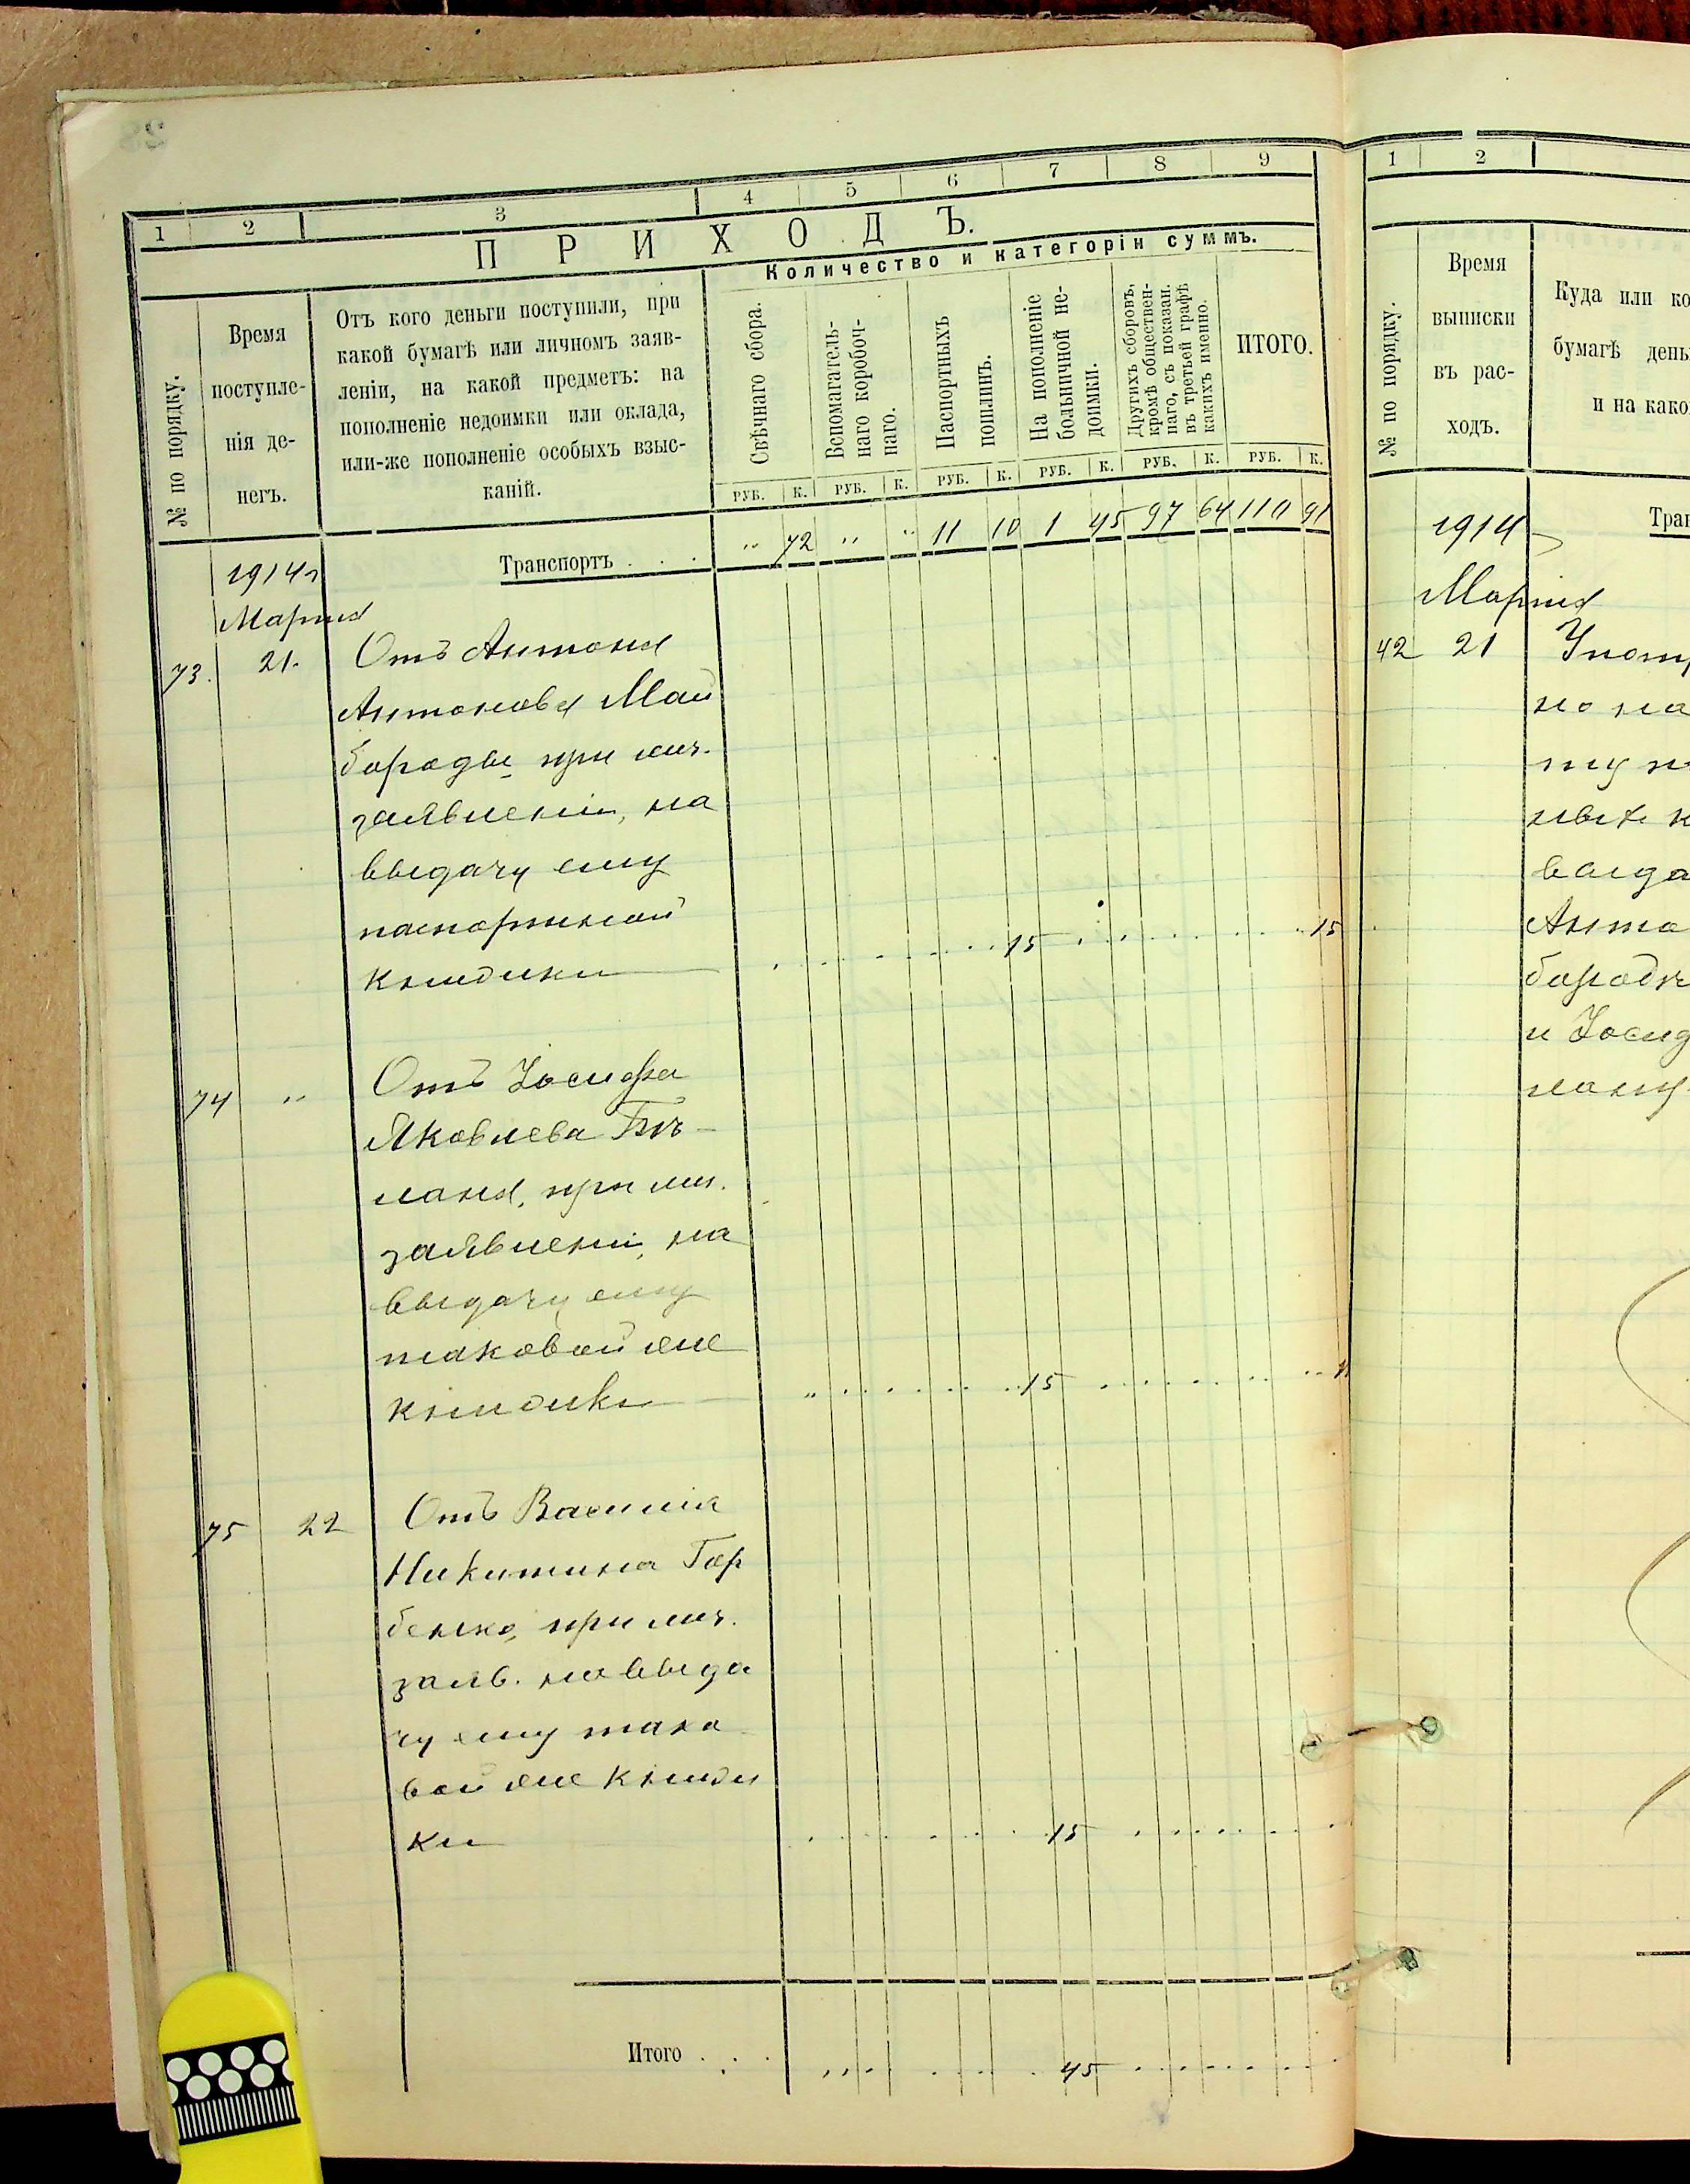 1 2 3 4 5 6 7 8 9
ПРИХОДЪ.
Количество и категоріи суммъ.
№ по порядку.
Время
поступле-
нія де-
негъ.
Отъ кого деньги поступили, при
какой бумагѣ или личномъ заяв-
леніи, на какой предметъ: на
пополненіе недоимки или оклада,
или-же пополненіе особыхъ взыс-
каній.
Свѣчнаго сбора.
Вспомагатель-
наго коробоч-
наго.
Паспортныхъ
пошлинъ.
На пополненіе
больничной не-
доимки.
Другихъ сборовъ,
кромѣ обществен-
наго, съ показан.
въ третьей графѣ
какихъ именно.
ИТОГО.
РУБ. К. РУБ. К. РУБ. К. РУБ. К. РУБ. К. РУБ. К.
Транспортъ . . . „ 72 „ „ 11 10 1 45 97 64 110 91
1914 г
Марта
73. 21. Отъ Антона
Антонова Май
бороды при лич.
заявленіи, на
выдачу ему
паспортной
книжки 15 15
74 „ Отъ Іосифа
Яковлева Бѣ-
лана, при лич.
заявленіи, на
выдачу ему
таковой же
книжки 15
75 22 Отъ Василія
Никитина Гор
бенко, при лич.
заяв. на выда
чу ему тако
вой же книж
ки 15
Итого . . . 45
1 2
№ по порядку.
Время
выписки
въ рас-
ходъ.
Куда или ко
бумагѣ день
и на како
Тран
1914
Марта
42 21 Упот
но на
ту п
выда
Анто
бородѣ
и Іосиф
лану